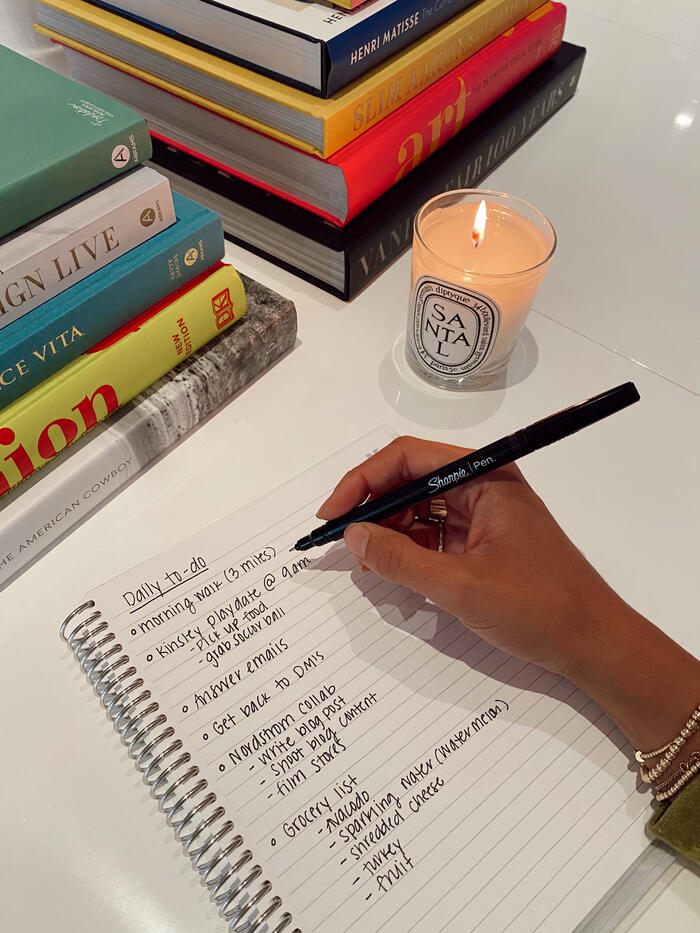 HENRI MATISSE The
SLIM AARONS
art THE DEFINITIVE VISUAL
VANI FAIR 100 YEARS
A
ABRAMS
IGN LIVE
A
ABRAMS
CE VITA
A
ion
NEW
EDITION
DK
HE AMERICAN COWBOY
diptyque
SA
NTA
L
Sharpie | Pen.
Daily to-do
• morning walk (3 miles)
• Kinsley playdate @ 9am
- pick up food
- grab soccor ball
• Answer emails
• Get back to DMs
• Nordstrom collab
- write blog post
- shoot blog content
- film stores
• Grocery list
- Avacado
- sparking water (watermelon)
- shredded cheese
- turkey
- fruit